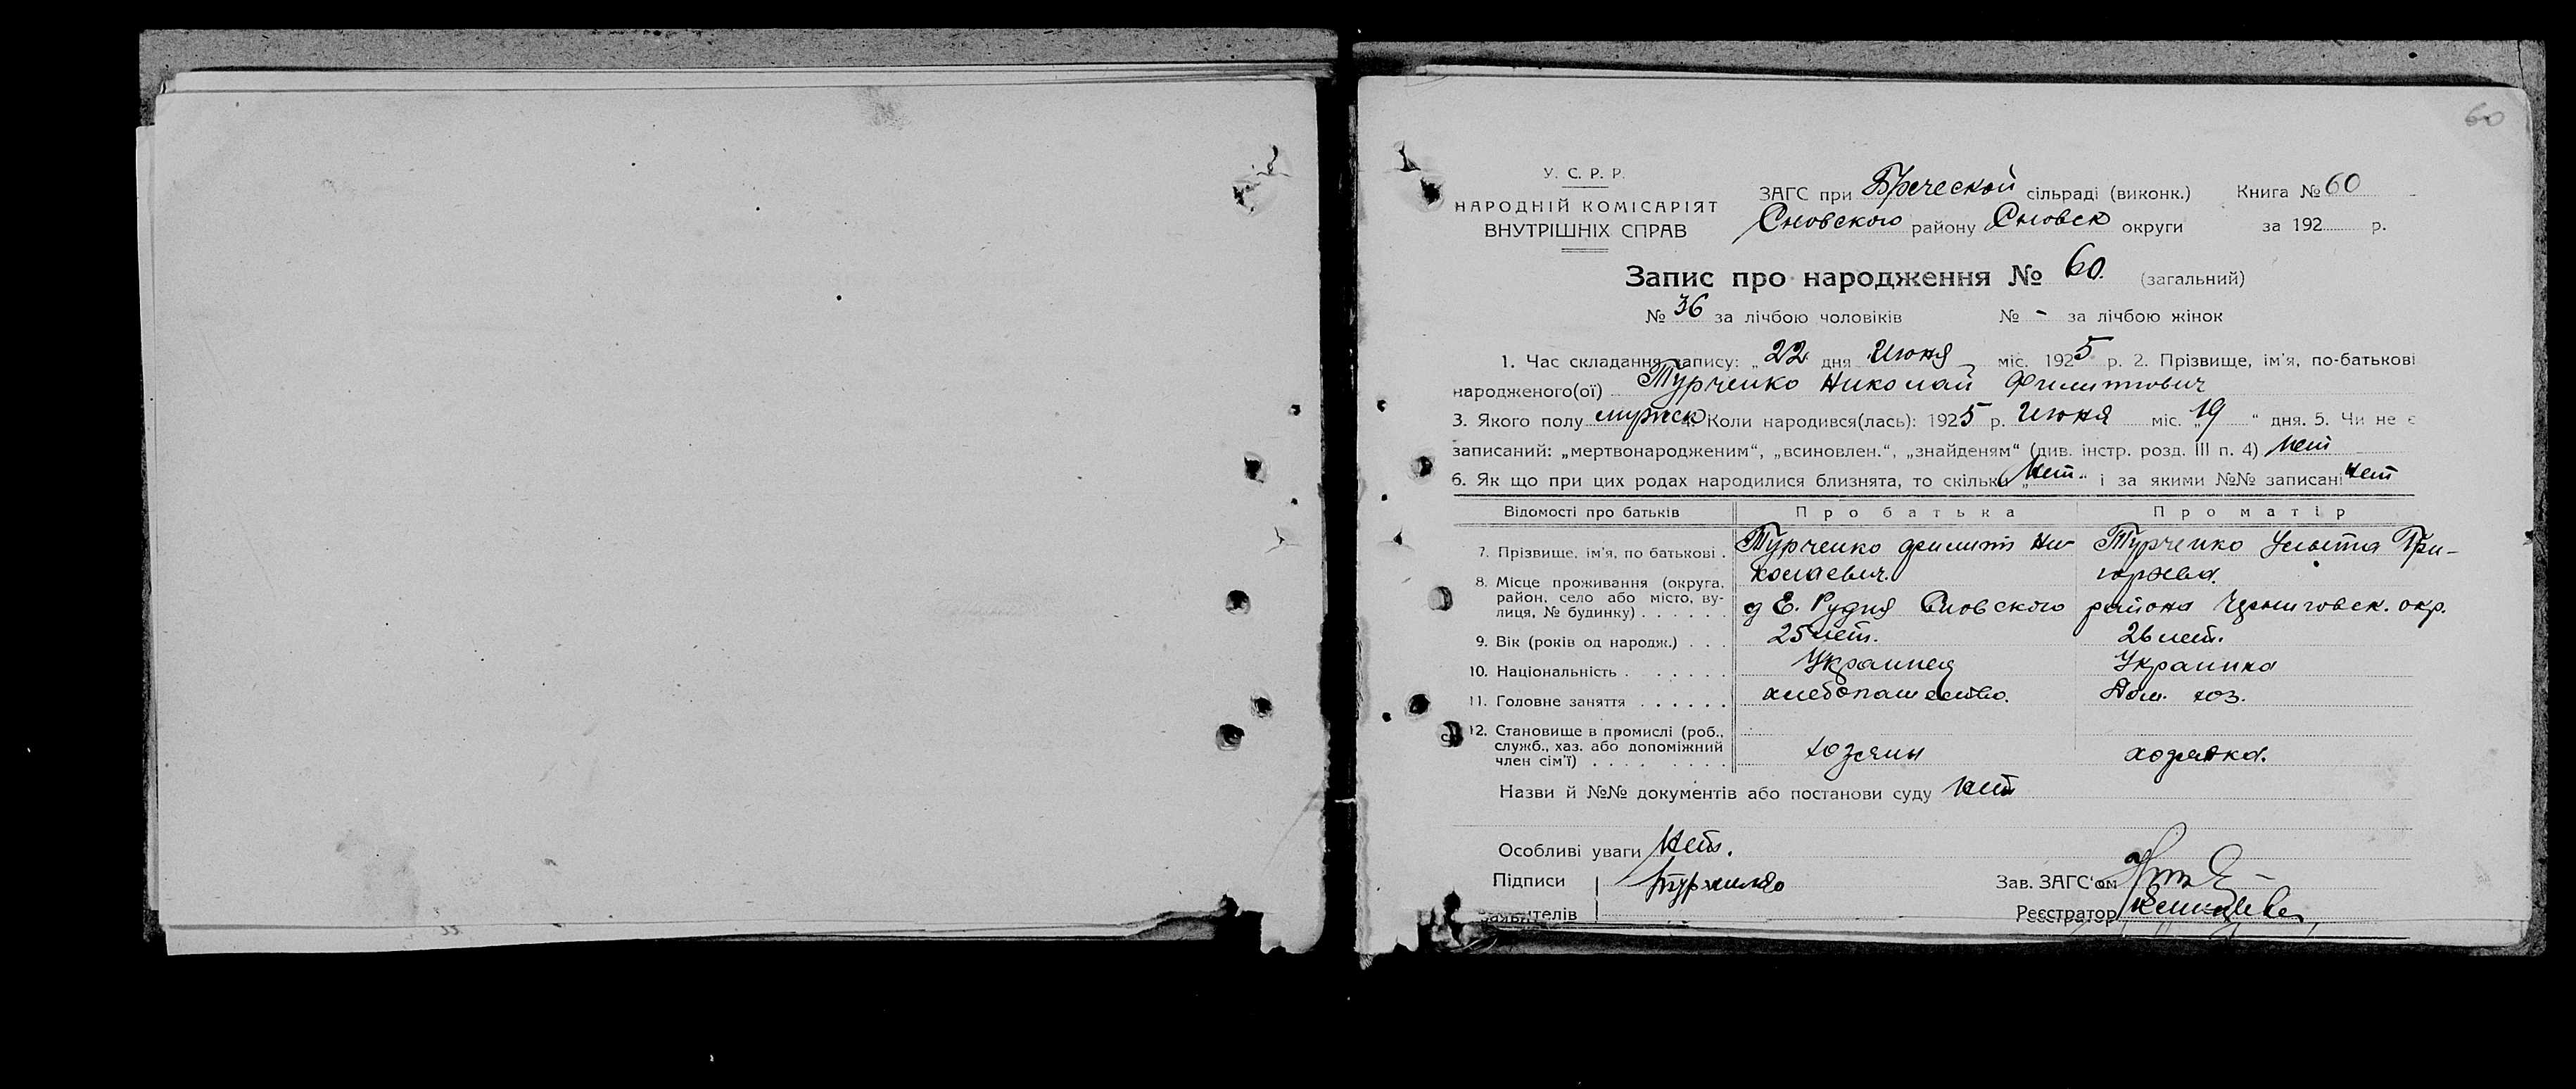 60
У. С. Р. Р.
НАРОДНІЙ КОМІСАРІЯТ
ВНУТРІШНІХ СПРАВ
ЗАГС при Бреческой сільраді (виконк.) Книга № 60
Сновского району Сновск округи за 192 р.
Запис про народження № 60. (загальний)
№ 36 за лічбою чоловіків № - за лічбою жінок
1. Час складання запису: „ 22 дня Июня міс. 1925 р. 2. Прізвище, ім'я, по-батькові
народженого(ої) Турченко Николай Филиппович
3. Якого полу мужск Коли народився(лась): 1925 р. Июня міс. „19 “ дня. 5. Чи не є
записаний: „мертвонародженим“, „всиновлен.“, „знайденям“ (див. інстр. розд. III п. 4) нет
6. Як що при цих родах народилися близнята, то скільки „нет“ і за якими №№ записані нет
Відомості про батьків Про батька Про матір
7. Прізвище, ім'я, по батькові . Турченко Филипп Ни- Турченко Ульяна Гри-
колаевич. горьева.
8. Місце проживання (округа,
район, село або місто, ву-
лиця, № будинку) . . . . . . д Е. Рудня Сновского района Черниговск. окр.
9. Вік (років од народж.) . . . 25 лет. 26 лет.
10. Національність . . . . . . . Украинец Украинка
11. Головне заняття . . . . . . хлебопашество. Дом. хоз.
12. Становище в промислі (роб.,
служб., хаз. або допоміжний
член сім'ї) . . . . . . . . хозяин хозяйка.
Назви й №№ документів або постанови суду нет
Особливі уваги Нет.
Підписи Турченко Зав. ЗАГС'ом
заявителів Реєстратор